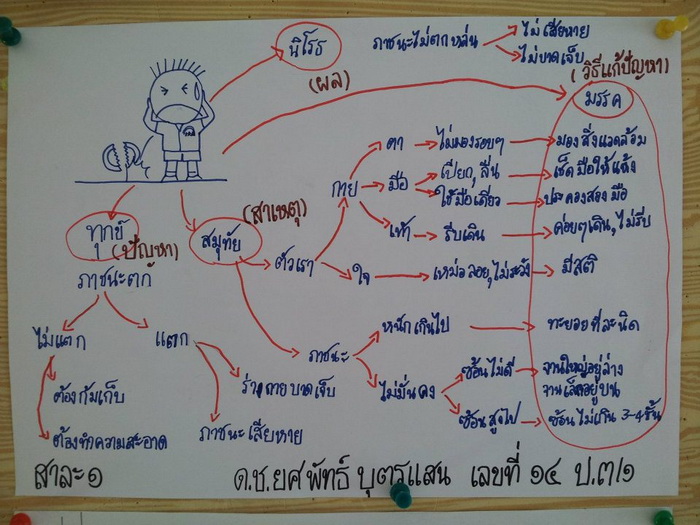 นิโรธ
(ผล)
ภาชนะไม่ตกหล่น
ไม่เสียหาย
ไม่บาดเจ็บ
(วิธีแก้ปัญหา)
มรรค
ทุกข์
(ปัญหา)
ภาชนะตก
ไม่แตก
ต้องก้มเก็บ
ต้องทำความสะอาด
แตก
ร่างกายบาดเจ็บ
ภาชนะเสียหาย
สมุทัย
(สาเหตุ)
ตัวเรา
กาย
ตา
ไม่มองรอบๆ
มองสิ่งแวดล้อม
มือ
เปียก, ลื่น
เช็ดมือให้แห้ง
ใช้มือเดียว
ประคองสองมือ
เท้า
รีบเดิน
ค่อยๆเดิน, ไม่รีบ
ใจ
เหม่อลอย, ไม่ระวัง
มีสติ
ภาชนะ
หนักเกินไป
ทะยอยทีละนิด
ไม่มั่นคง
ซ้อนไม่ดี
จานใหญ่อยู่ล่าง
จานเล็กอยู่บน
ซ้อนสูงไป
ซ้อนไม่เกิน 3-4 ชั้น
สาละ๑
ด.ช.ยศพัทธ์ บุตรแสน เลขที่ ๑๔ ป.๓/๑